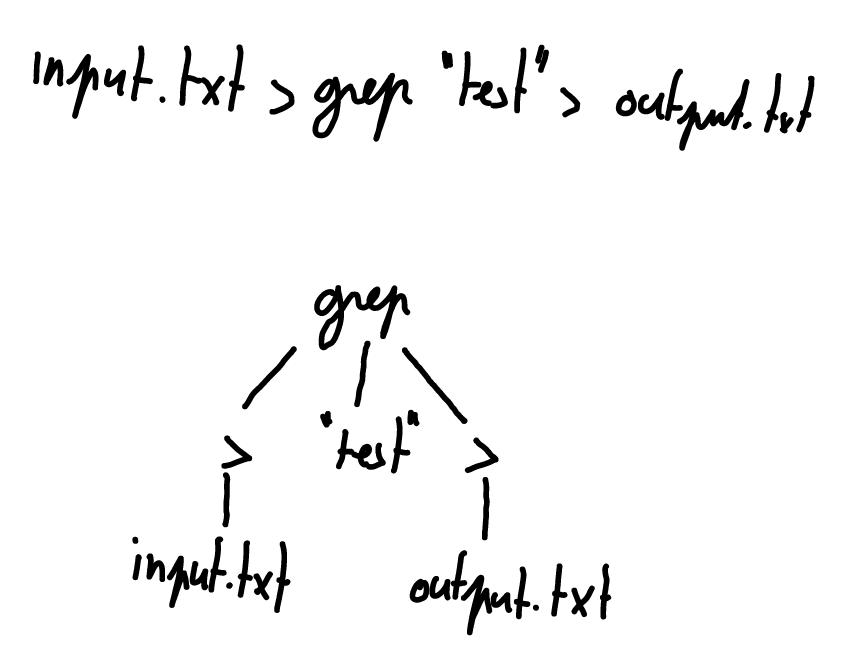 input.txt > grep "test" > output.txt
grep
> "test" >
input.txt output.txt